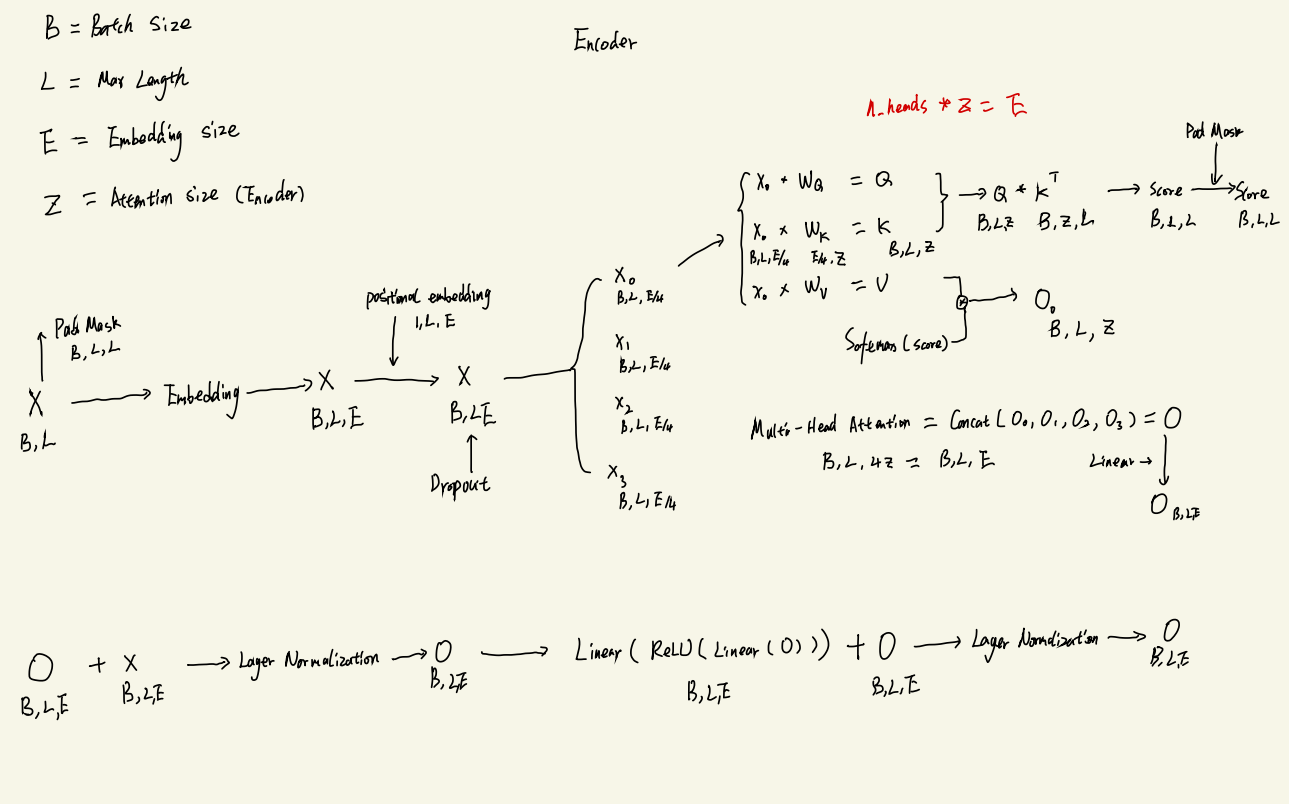 B = Batch size
L = Max Length
E = Embedding size
Z = Attention size (Encoder)
Encoder
n_heads * Z = E
Pad Mask
B, L, L
X
B, L
Embedding
X
B, L, E
positional embedding
1, L, E
X
B, L, E
Dropout
X₀
B, L, E/4
X₁
B, L, E/4
X₂
B, L, E/4
X₃
B, L, E/4
X₀ * W_Q = Q
X₀ * W_K = K
B, L, E/4 E/4, Z B, L, Z
X₀ * W_V = V
Q * K^T
B, L, Z B, Z, L
Score
B, L, L
Pad Mask
Score
B, L, L
Softmax (score)
O₀
B, L, Z
Multi-Head Attention = Concat (O₀, O₁, O₂, O₃) = O
B, L, 4Z = B, L, E
Linear →
O B, L, E
O + X
B, L, E B, L, E
Layer Normalization
O
B, L, E
Linear ( ReLU ( Linear ( O ) ) ) + O
B, L, E B, L, E
Layer Normalization
O
B, L, E